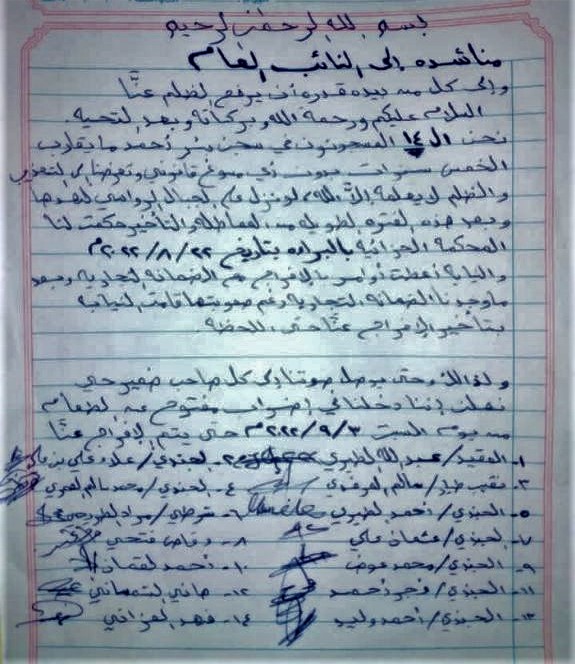 بسم الله الرحمن الرحيم
مناشدة إلى النائب العام
وإلى كل من بيده قدره أن يرفع الظلم عنّا
السلام عليكم ورحمة الله وبركاته وبعد التحيه
نحن ال ١٤ المسجونون في سجن بئر أحمد ما يقارب
الخمس سنوات بدون أي مسوغ قانوني وتعرضنا الى التعذيب
والظلم لا يعلمه إلا الله لو نزل على الجبال الرواسي لهدها
وبعد هذه الفتره الطويله من المماطله والتأخير حكمت لنا
المحكمة الجزائية بالبراءه بتاريخ ٢٢/٨/٢٠٢٢م
والنيابة أعطت أوامر بالإفراج مع الضمانه التجارية وبعد
ما وجدنا الضمانه التجارية رغم صعوبتها قامت النيابه
بتأخير الإفراج عنّا حتى اللحظه
ولذالك وحتى يوصل صوتنا إلى كل صاحب ضمير حي
نعلن إننا دخلنا في إضراب مفتوح عن الطعام
من يوم السبت ٣/٩/٢٠٢٢م حتى يتم الإفراج عنّا
١- العقيد/ عبد الله الطيري ٢- الجندي/ علاء علي بن علي
٣- نقيب طيار/ سالم ٤- الجندي/ محمد سالم
٥- الجندي/ احمد الطيري ٦- مراد
٧- الجندي/ عثمان علي ٨- وضاح فتحي
٩- الجندي/ محمد عوض ١٠- أحمد لقمان
١١- الجندي/ فجر أحمد ١٢- هاني
١٣- الجندي/ أحمد وليد ١٤- فهد العزاني